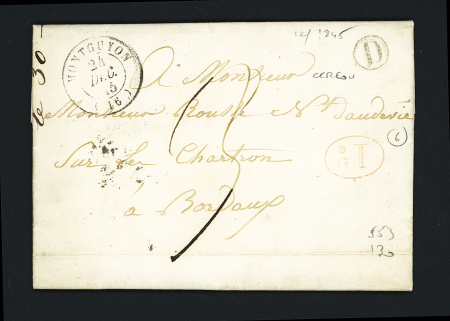 le 30
MONTGUYON
24
DEC.
45
(16)
12/1845
D
A Monsieur
CERCOU
Monsieur
6
Sur les Chartron
ID
à Bordaux
3
553
130